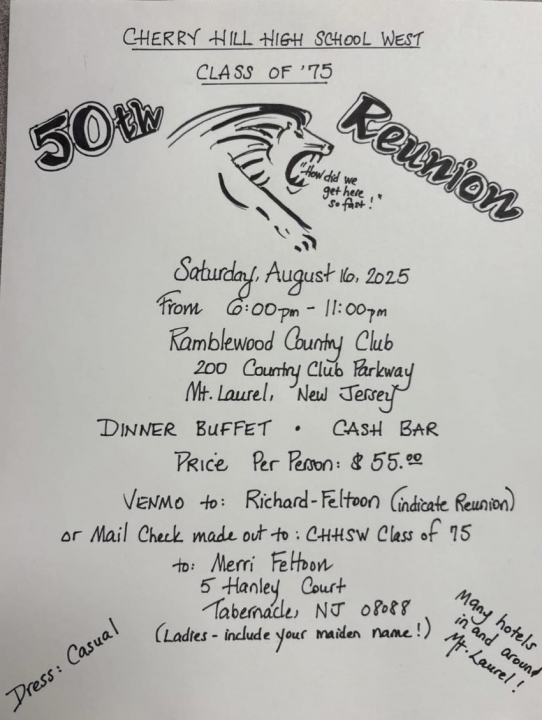 CHERRY HILL HIGH SCHOOL WEST
CLASS OF '75
50th Reunion
"How did we
get here
so fast!"
Saturday, August 16, 2025
From 6:00pm - 11:00pm
Ramblewood Country Club
200 Country Club Parkway
Mt. Laurel, New Jersey
DINNER BUFFET • CASH BAR
PRICE Per Person: $55.00
VENMO to: Richard-Feltoon (indicate Reunion)
or Mail Check made out to: CHHSW Class of 75
to: Merri Feltoon
5 Hanley Court
Tabernacle, NJ 08088
(Ladies - include your maiden name!)
Dress: Casual
Many hotels
in and around
Mt. Laurel!